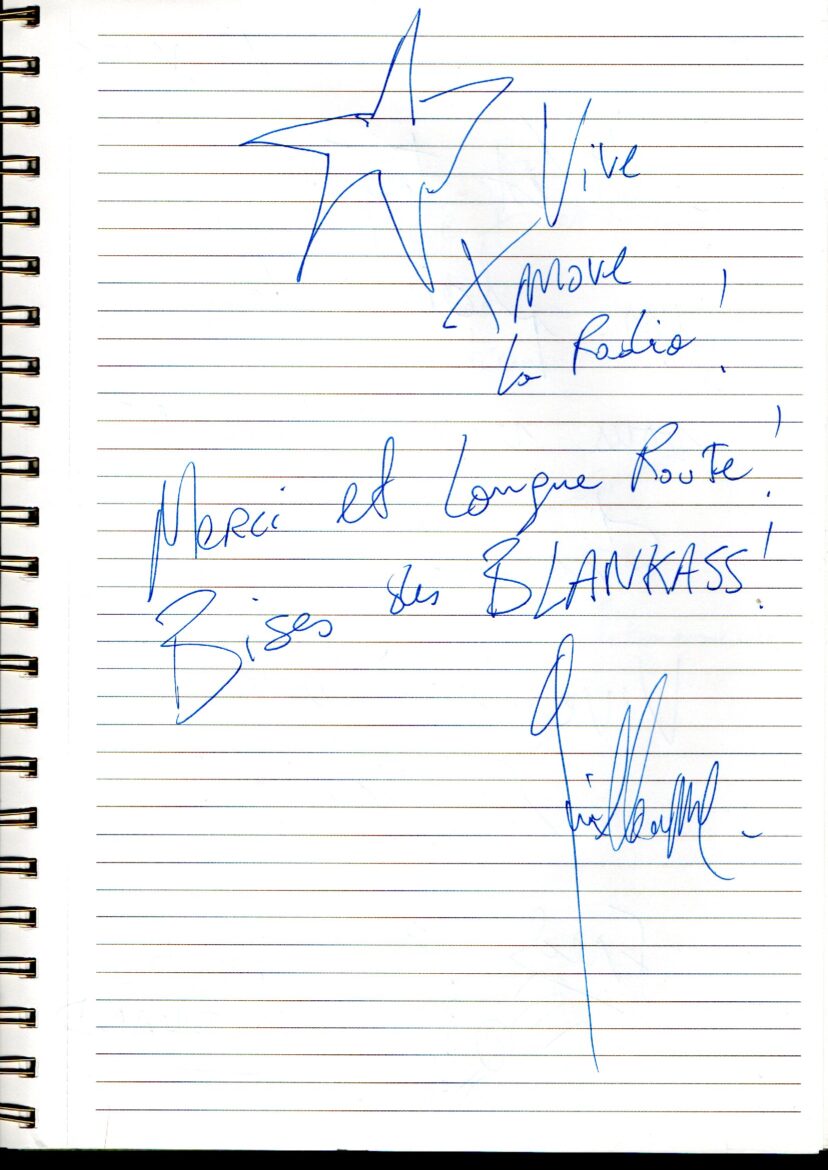 Vive
Xmove
la Radio !
Merci et Longue Route !
Bises des BLANKASS !
Guillaume